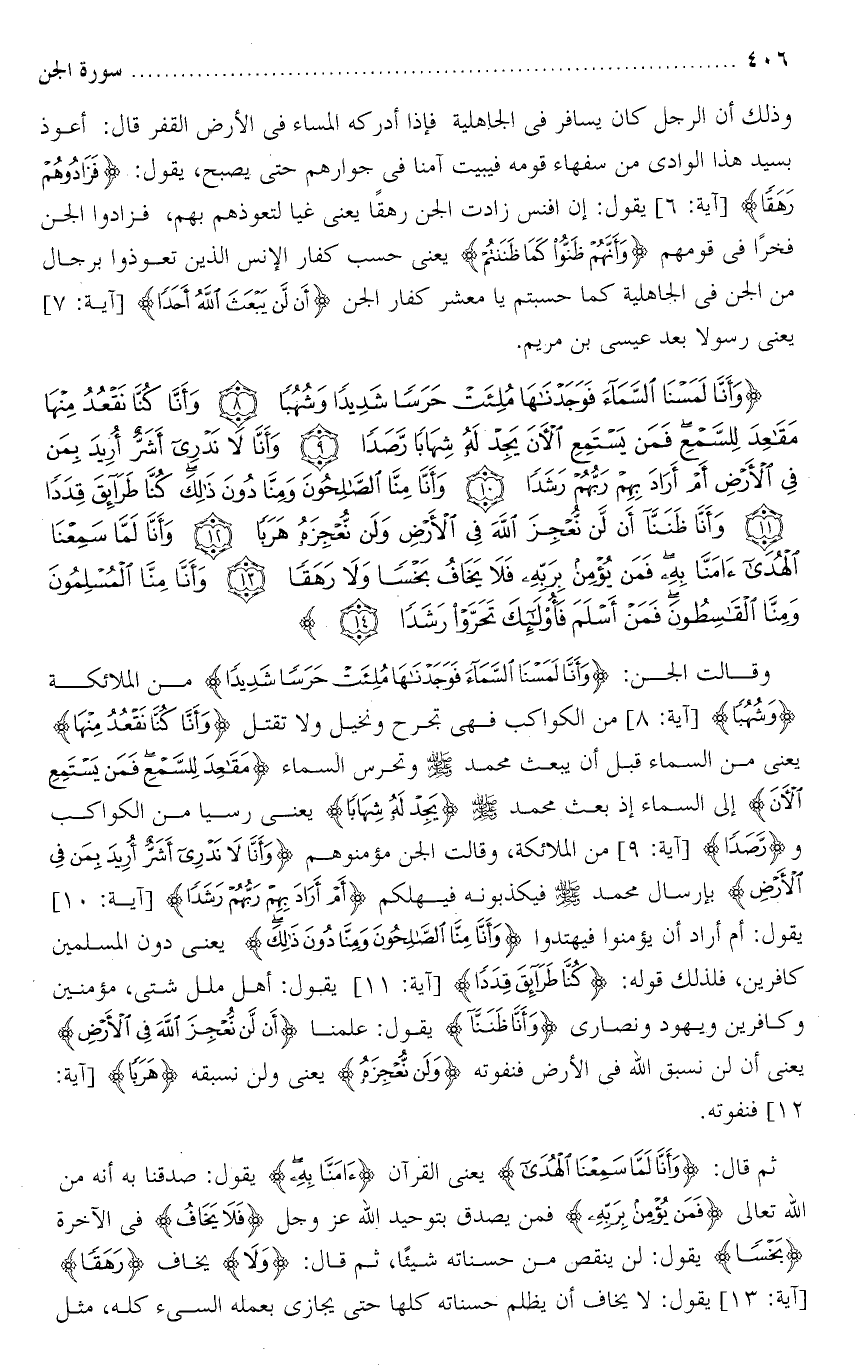 ٤٠٦ ........................................................................ سورة الجن
وذلك أن الرجل كان يسافر فى الجاهلية فإذا أدركه المساء فى الأرض القفر قال: أعوذ
بسيد هذا الوادى من سفهاء قومه فيبيت آمنا فى جوارهم حتى يصبح، يقول: ﴿فَزَادُوهُمْ
رَهَقًا﴾ [آية: ٦] يقول: إن افنس زادت الجن رهقًا يعنى غيا لتعوذهم بهم، فزادوا الجن
فخرًا فى قومهم ﴿وَأَنَّهُمْ ظَنُّوا۟ كَمَا ظَنَنتُمْ﴾ يعنى حسب كفار الإنس الذين تعوذوا برجال
من الجن فى الجاهلية كما حسبتم يا معشر كفار الجن ﴿أَن لَّن يَبْعَثَ اللَّهُ أَحَدًا﴾ [آية: ٧]
يعنى رسولا بعد عيسى بن مريم.
﴿وَأَنَّا لَمَسْنَا السَّمَآءَ فَوَجَدْنَٰهَا مُلِئَتْ حَرَسًا شَدِيدًا وَشُهُبًا ٨ وَأَنَّا كُنَّا نَقْعُدُ مِنْهَا
مَقَٰعِدَ لِلسَّمْعِ ۖ فَمَن يَسْتَمِعِ الْآنَ يَجِدْ لَهُۥ شِهَابًا رَّصَدًا ٩ وَأَنَّا لَا نَدْرِىٓ أَشَرٌّ أُرِيدَ بِمَن
فِى الْأَرْضِ أَمْ أَرَادَ بِهِمْ رَبُّهُمْ رَشَدًا ١٠ وَأَنَّا مِنَّا الصَّٰلِحُونَ وَمِنَّا دُونَ ذَٰلِكَ ۖ كُنَّا طَرَآئِقَ قِدَدًا
١١ وَأَنَّا ظَنَنَّآ أَن لَّن نُّعْجِزَ اللَّهَ فِى الْأَرْضِ وَلَن نُّعْجِزَهُۥ هَرَبًا ١٢ وَأَنَّا لَمَّا سَمِعْنَا
الْهُدَىٰٓ ءَامَنَّا بِهِۦ ۖ فَمَن يُؤْمِنۢ بِرَبِّهِۦ فَلَا يَخَافُ بَخْسًا وَلَا رَهَقًا ١٣ وَأَنَّا مِنَّا الْمُسْلِمُونَ
وَمِنَّا الْقَٰسِطُونَ ۖ فَمَنْ أَسْلَمَ فَأُو۟لَٰٓئِكَ تَحَرَّوْا۟ رَشَدًا ١٤ ﴾
وقالت الجن: ﴿وَأَنَّا لَمَسْنَا السَّمَآءَ فَوَجَدْنَٰهَا مُلِئَتْ حَرَسًا شَدِيدًا﴾ من الملائكة
﴿وَشُهُبًا﴾ [آية: ٨] من الكواكب فهى تجرح وتخيل ولا تقتل ﴿وَأَنَّا كُنَّا نَقْعُدُ مِنْهَا﴾
يعنى من السماء قبل أن يبعث محمد ﷺ وتحرس السماء ﴿مَقَٰعِدَ لِلسَّمْعِ ۖ فَمَن يَسْتَمِعِ
الْآنَ﴾ إلى السماء إذ بعث محمد ﷺ ﴿يَجِدْ لَهُۥ شِهَابًا﴾ يعنى رسيا من الكواكب
و ﴿رَّصَدًا﴾ [آية: ٩] من الملائكة، وقالت الجن مؤمنوهم ﴿وَأَنَّا لَا نَدْرِىٓ أَشَرٌّ أُرِيدَ بِمَن فِى
الْأَرْضِ﴾ بإرسال محمد ﷺ فيكذبونه فيهلكم ﴿أَمْ أَرَادَ بِهِمْ رَبُّهُمْ رَشَدًا﴾ [آية: ١٠]
يقول: أم أراد أن يؤمنوا فيهتدوا ﴿وَأَنَّا مِنَّا الصَّٰلِحُونَ وَمِنَّا دُونَ ذَٰلِكَ ۖ﴾ يعنى دون المسلمين
كافرين، فلذلك قوله: ﴿كُنَّا طَرَآئِقَ قِدَدًا﴾ [آية: ١١] يقول: أهل ملل شتى، مؤمنين
وكافرين ويهود ونصارى ﴿وَأَنَّا ظَنَنَّآ﴾ يقول: علمنا ﴿أَن لَّن نُّعْجِزَ اللَّهَ فِى الْأَرْضِ﴾
يعنى أن لن نسبق الله فى الأرض فنفوته ﴿وَلَن نُّعْجِزَهُۥ﴾ يعنى ولن نسبقه ﴿هَرَبًا﴾ [آية:
١٢] فنفوته.
ثم قال: ﴿وَأَنَّا لَمَّا سَمِعْنَا الْهُدَىٰٓ﴾ يعنى القرآن ﴿ءَامَنَّا بِهِۦ ۖ﴾ يقول: صدقنا به أنه من
الله تعالى ﴿فَمَن يُؤْمِنۢ بِرَبِّهِۦ﴾ فمن يصدق بتوحيد الله عز وجل ﴿فَلَا يَخَافُ﴾ فى الآخرة
﴿بَخْسًا﴾ يقول: لن ينقص من حسناته شيئًا، ثم قال: ﴿وَلَا﴾ يخاف ﴿رَهَقًا﴾
[آية: ١٣] يقول: لا يخاف أن يظلم حسناته كلها حتى يجازى بعمله السىء كله، مثل